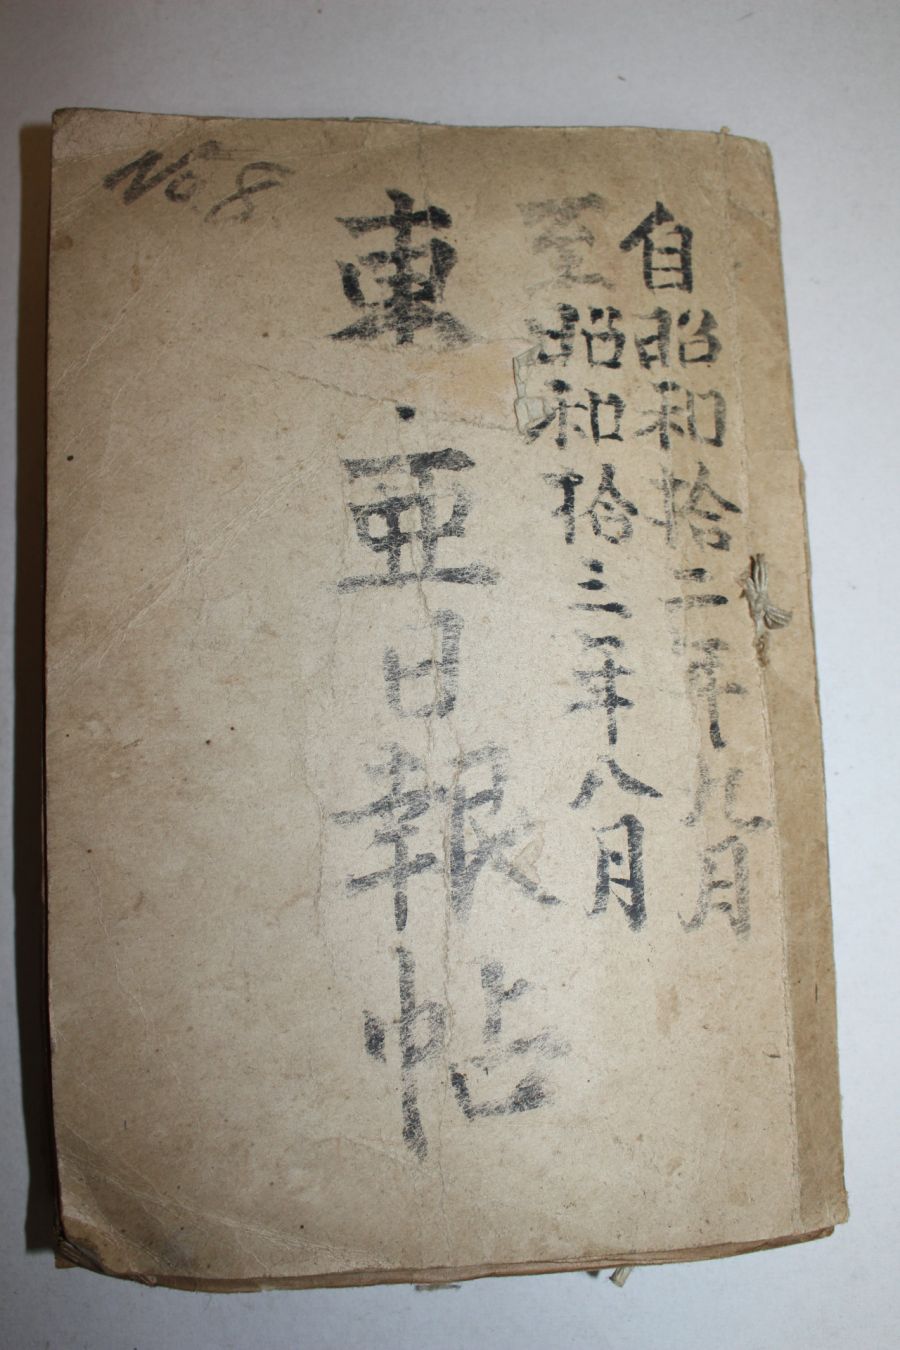 No. 8
自昭和拾二年九月
至昭和拾三年八月
東亜日報帖